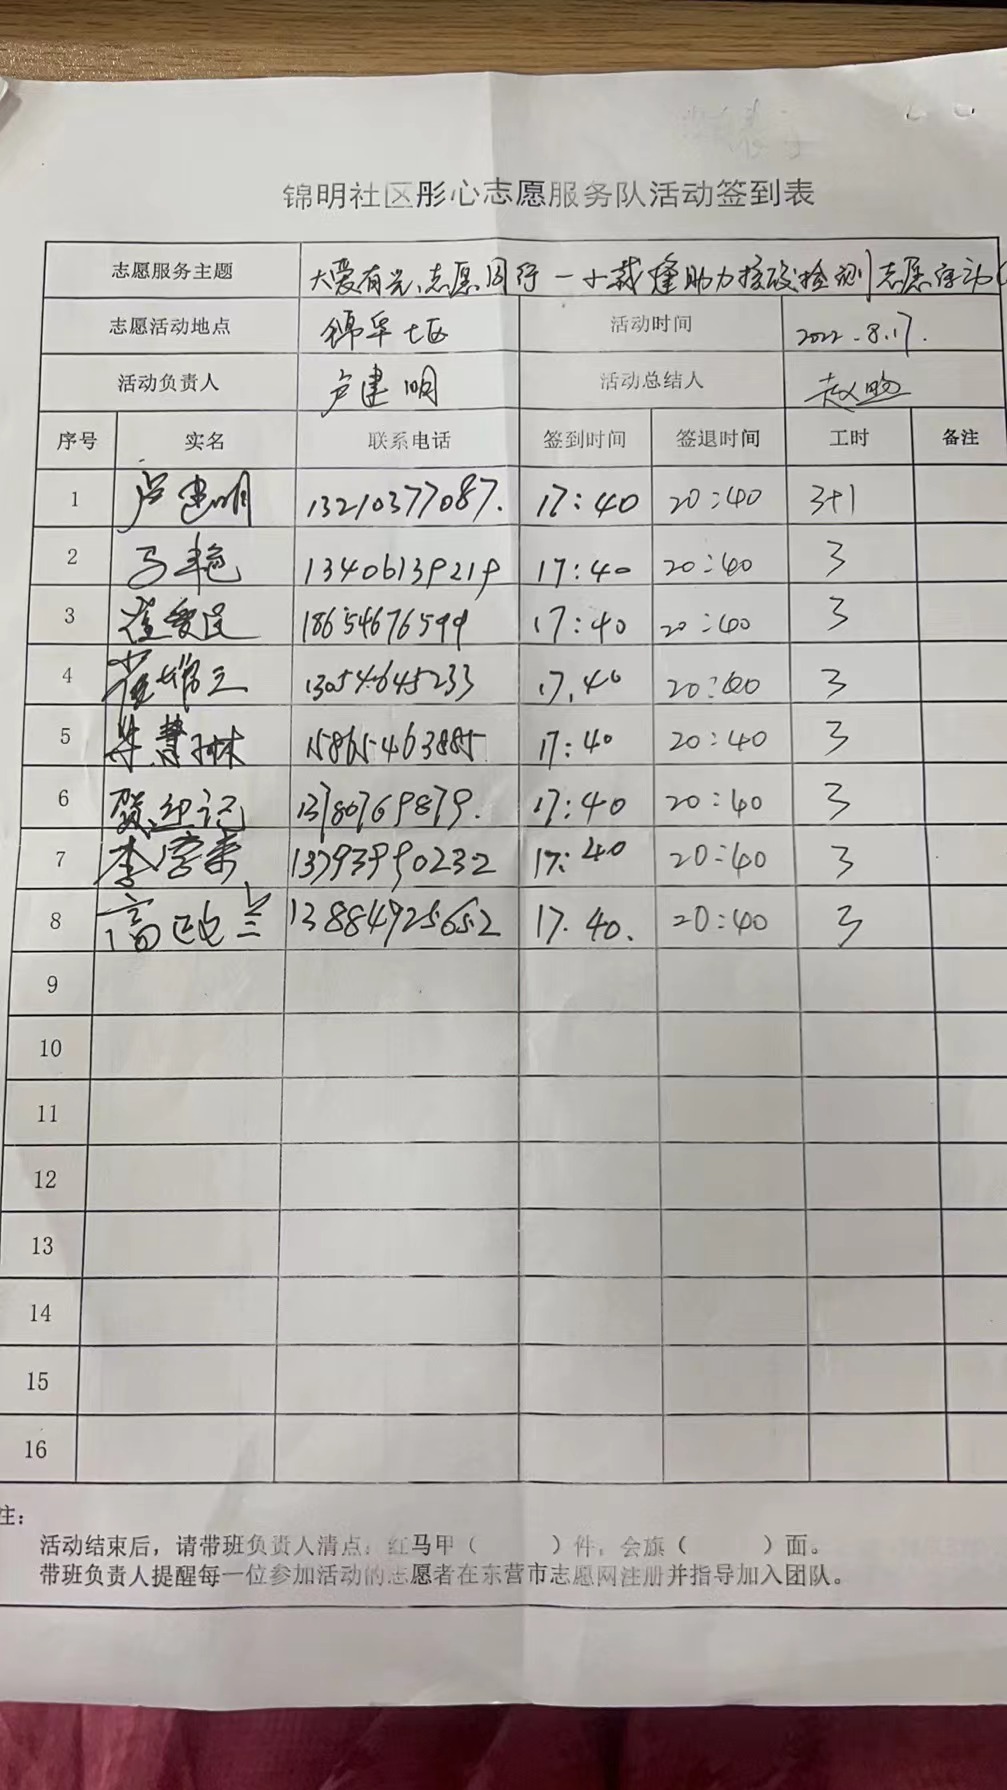 锦明社区彤心志愿服务队活动签到表
志愿服务主题 大爱有光、志愿同行 一 助力核酸检测志愿
志愿活动地点 锦华七区 活动时间 2022.8.17.
活动负责人 卢建明 活动总结人 赵
序号 实名 联系电话 签到时间 签退时间 工时 备注
1 卢建明 13210377087. 17:40 20:40 3+1
2 马艳 13406139219 17:40 20:40 3
3 崔爱民 18654676599 17:40 20:40 3
4 崔 13054645233 17.40 20:40 3
5 慧琳 15865463885 17:40 20:40 3
6 贺迎记 13780769879. 17:40 20:40 3
7 李 13793990232 17:40 20:40 3
8 高 兰 13884925652 17.40. 20:40 3
9
10
11
12
13
14
15
16
注:
活动结束后，请带班负责人清点：红马甲（ ）件，会旗（ ）面。
带班负责人提醒每一位参加活动的志愿者在东营市志愿网注册并指导加入团队。